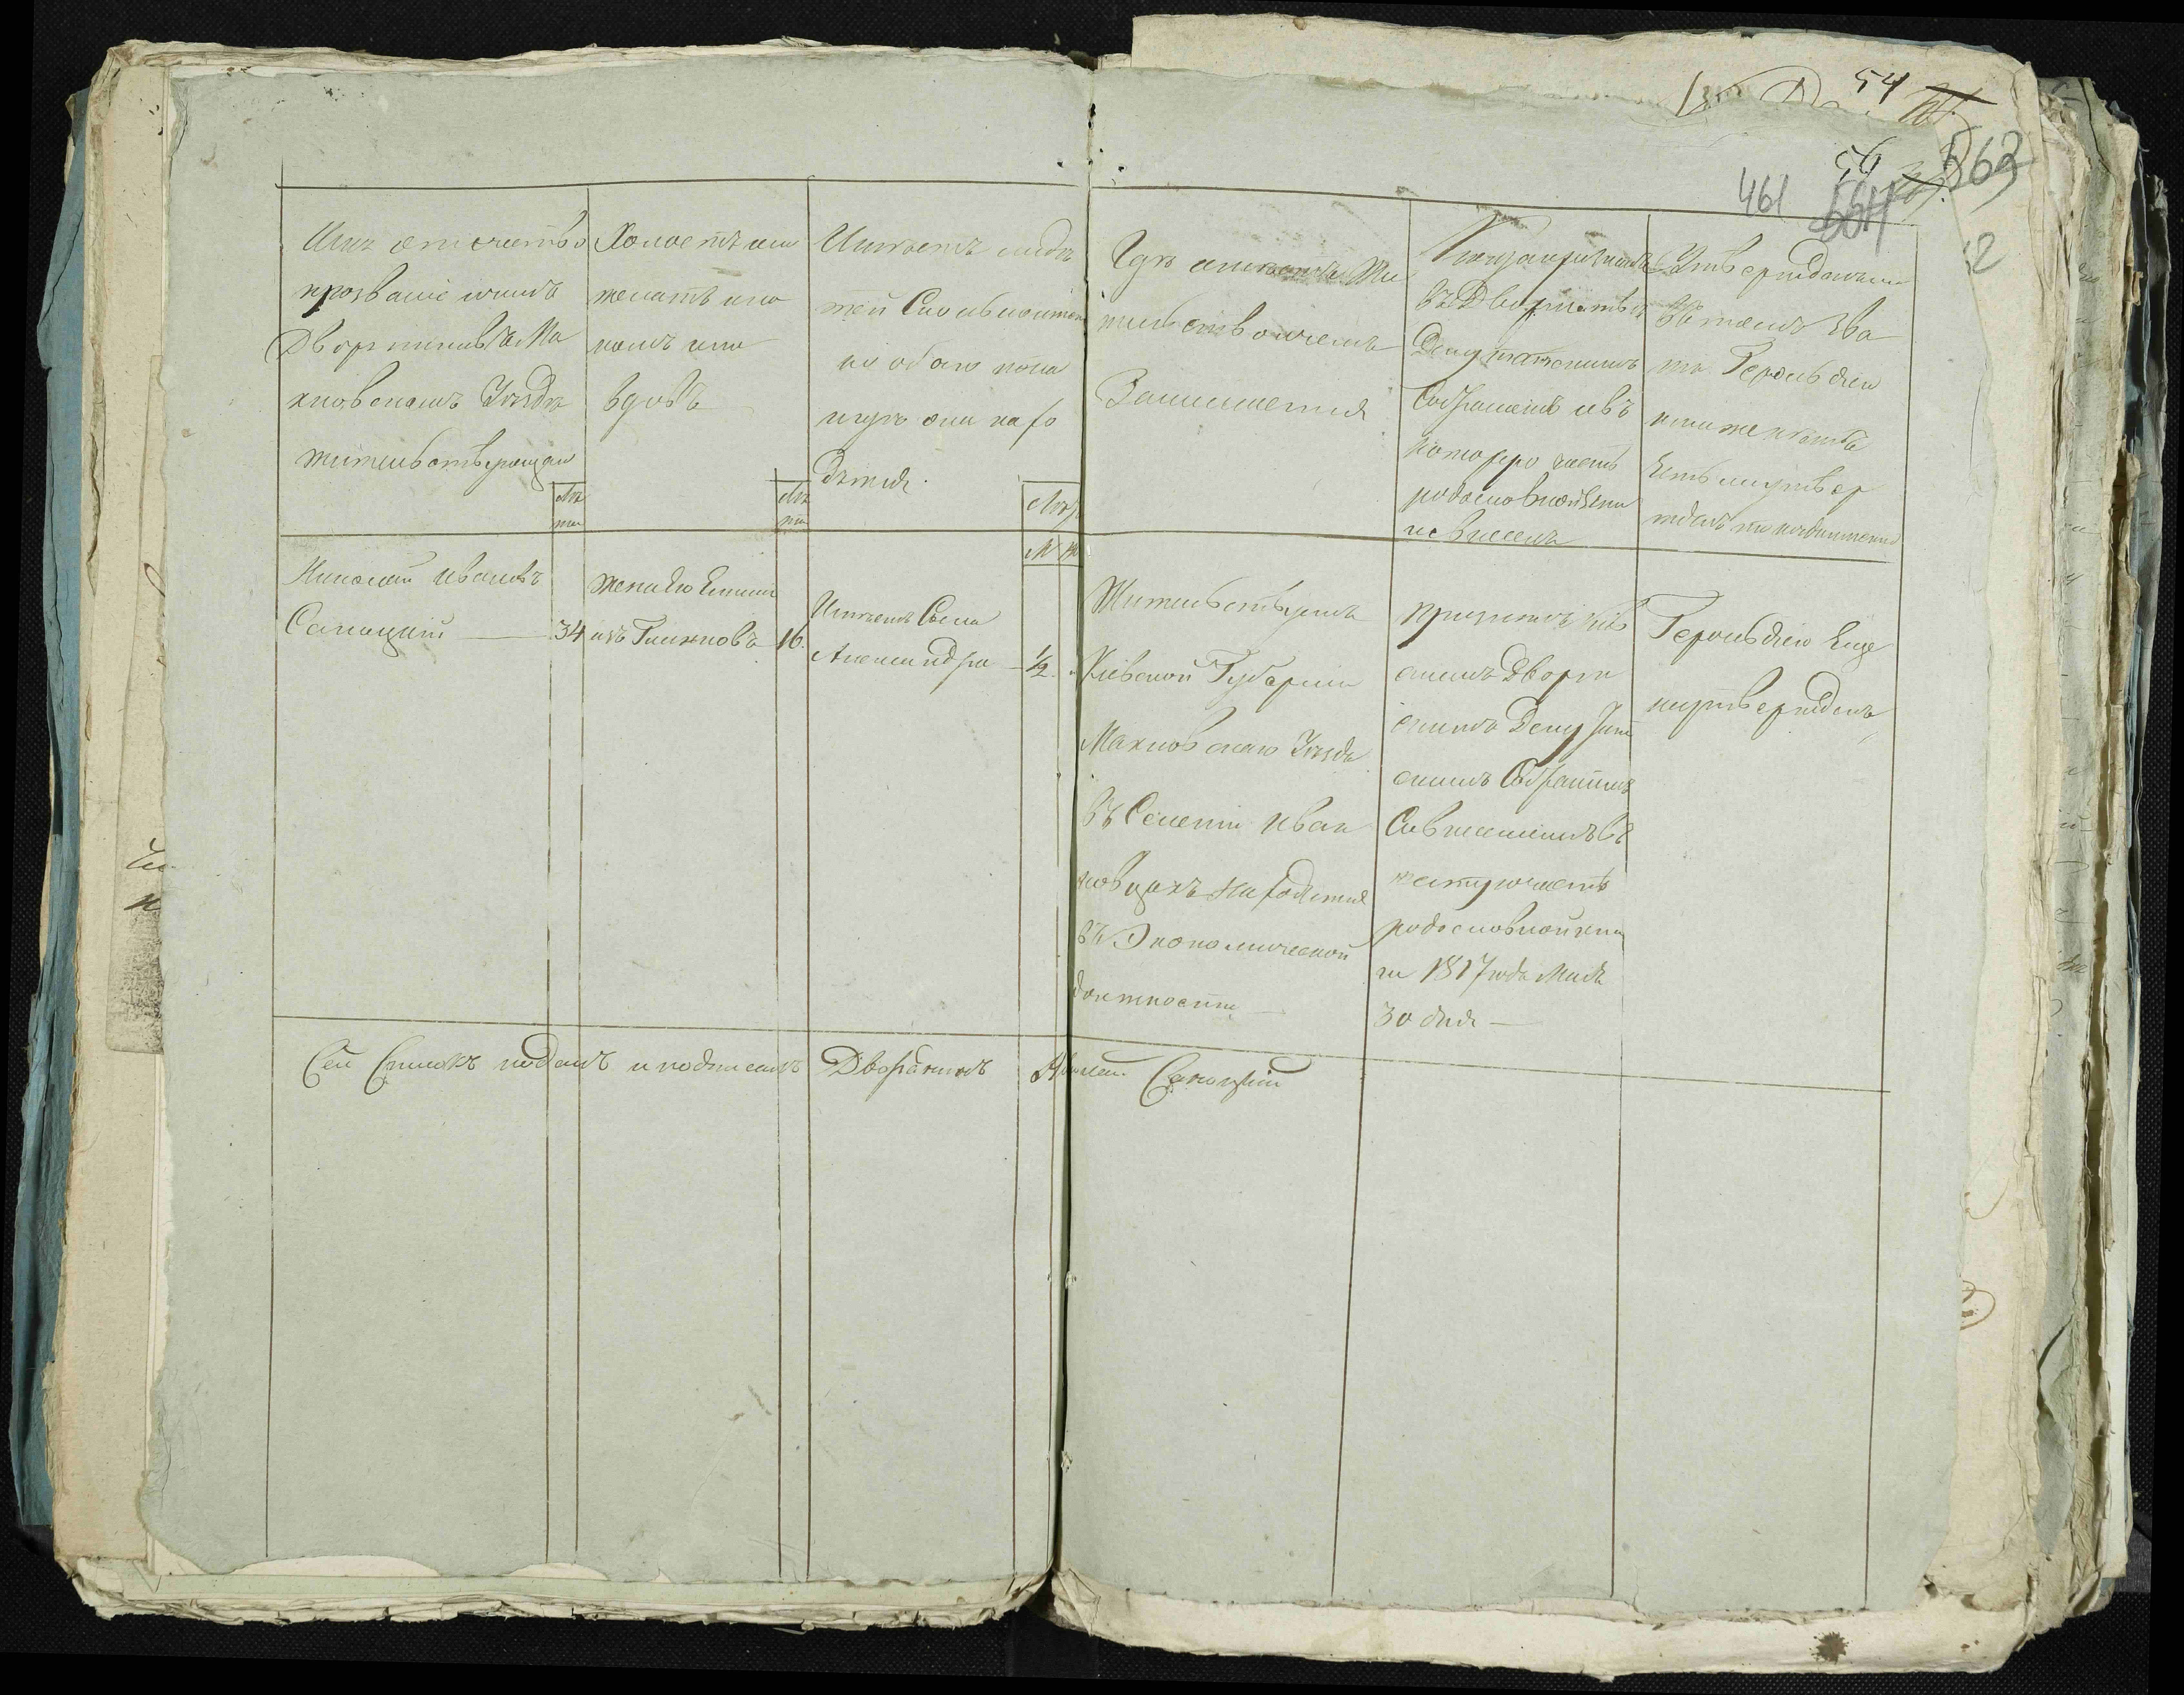 54
56
461
562
12
Имя отечество
прозваніе и чинъ
Дворянинъ въ Ма
хновскомъ Уѣзде
жительствующаго
Лѣ
та
Холостъ или
женатъ и на
комъ или
вдовъ
Лѣ
та
Имѣетъ ли дѣ
тей сколько имян
но обоего пола
и гдѣ они нахо
дятся.
Лѣта
М Ж
Гдѣ имѣетъ Жи
тельство и чемъ
Занимается
въ Дворянствѣ
Депутатскимъ
Собраніемъ и въ
которую часть
родословной кни
ги внесенъ
Утвержденъ ли
въ томъ зва
ніи Герольдіею
или же можетъ
быть не утвер
жденъ
Николай Ивановъ
Саноцкій — 34
жена Его
изъ Глинковъ 16.
Имѣетъ Сына
Александра — 1/2.
Жительствуетъ
Кіевской Губерніи
Махновского Уѣзда
въ Селеніи Иван
ковцахъ находится
въ Экономической
должности —
признанъ Кіев
скимъ Дворян
скимъ Депутат
скимъ Собраніемъ
Со внесеніемъ въ
шестую часть
родословной кни
ги 1817 года Мая
30 дня —
Герольдіею Еще
неутвержденъ
Сей Списокъ подалъ и подписалъ Дворянинъ Николай Саноцкій